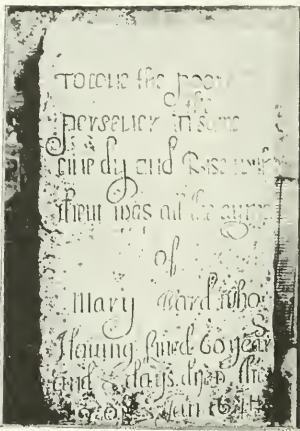 To loue the poore
the
perseuer in same
liue dy and Rise with
them was all the ayme
of
Mary Ward who
Hauing liued 60 years
and 8 days dyed the
of Jan 1645